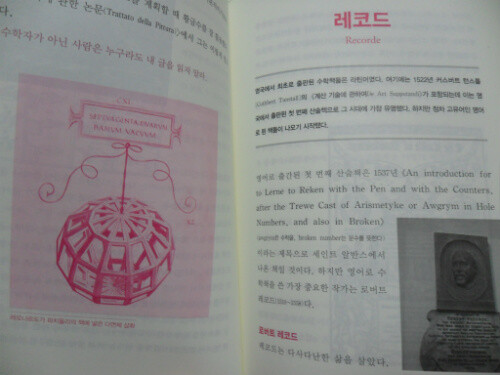 관한 논문(Trattato della Pittura)에서 그는
수학자가 아닌 사람은 누구라도 내 글을 읽지 말라.
레코드
Recorde
영국에서 최초로 출판된 수학책들은 라틴어였다. 여기에는 1522년 커스버트 턴스톨
(Cuthbert Tunstall)의 《계산 기술에 관하여(De Arte Supputandi)》가 포함되는데 이는 영
국에서 출판된 첫 번째 산술책으로 그 시대에 가장 유명했다. 하지만 점차 고유어인 영어
로 된 책들이 나오기 시작했다.
영어로 출간된 첫 번째 산술책은 1537년 《An introduction for
to Lerne to Reken with the Pen and with the Counters,
after the Trewe Cast of Arismetyke or Awgrym in Hole
Numbers, and also in Broken》
(awgrym은 수학을, broken number는 분수를 뜻한다)
이라는 제목으로 세인트 알반스에서
나온 책일 것이다. 하지만 영어로 수
학책을 쓴 가장 중요한 작가는 로버트
레코드(1510~1558)다.
로버트 레코드
레코드는 다사다난한 삶을 살았다.